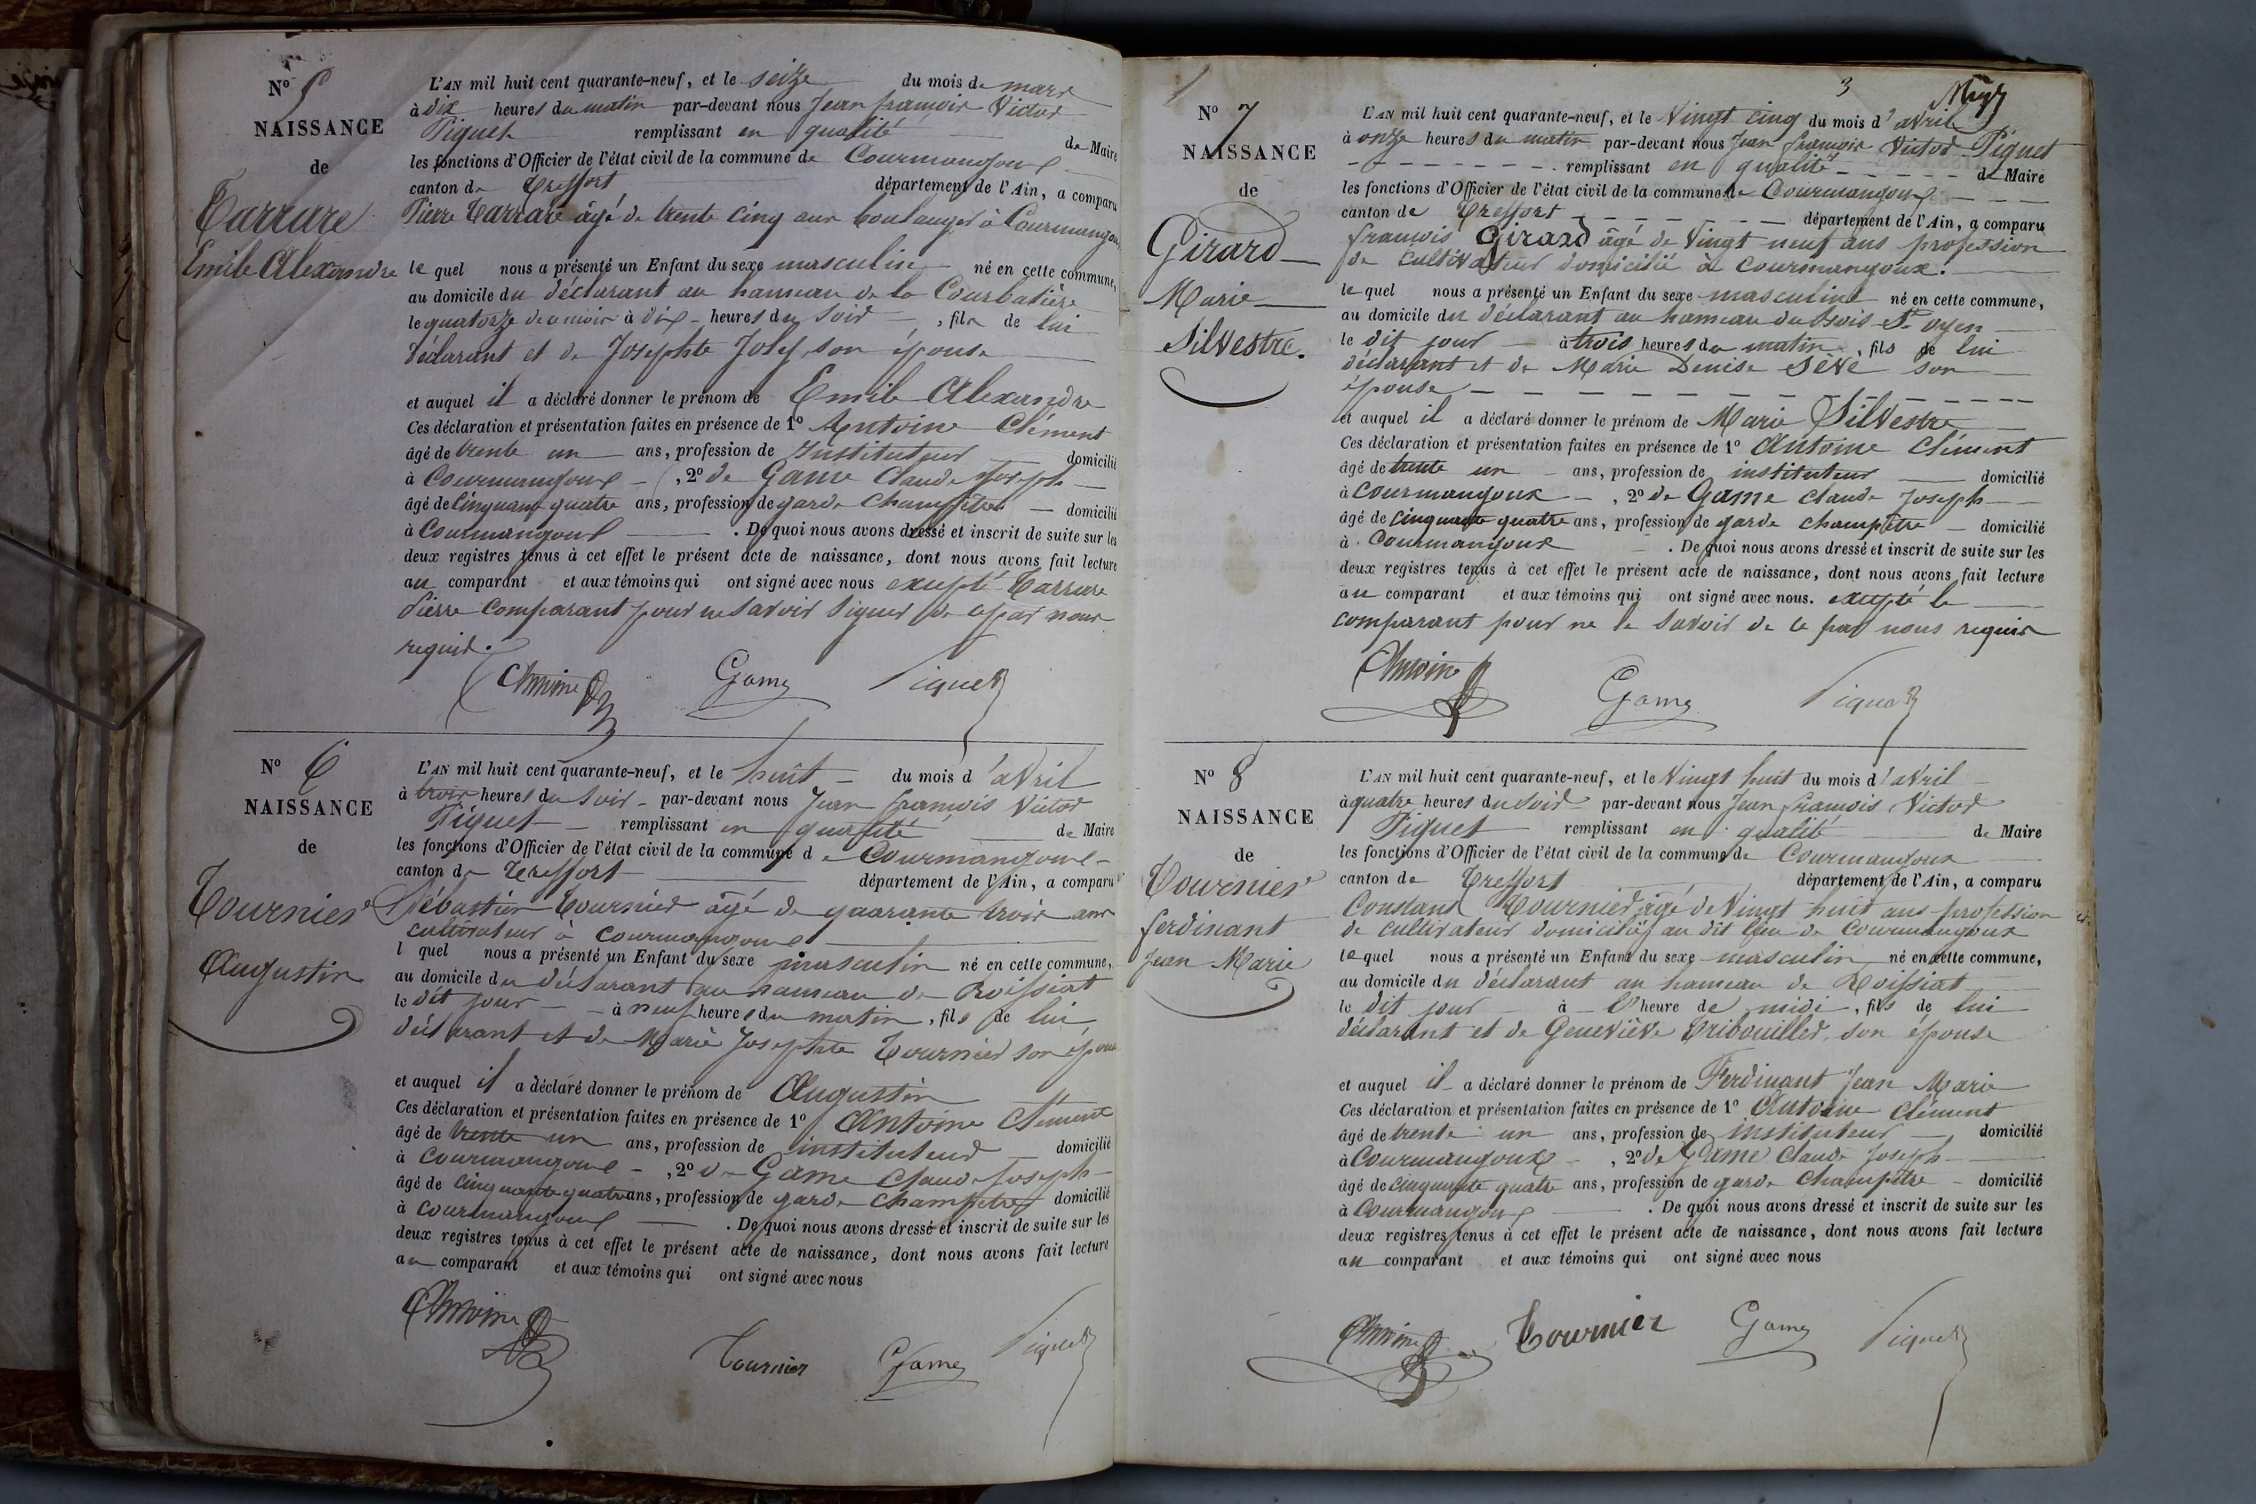 N° 5
NAISSANCE
de
Carrare
Emile Alexandre
L'AN mil huit cent quarante-neuf, et le seize du mois de mars
à dix heures du matin par-devant nous Jean françois Victor
Piquet remplissant en qualité de Maire
les fonctions d'Officier de l'état civil de la commune de Courmangoux
canton de Treffort département de l'Ain, a comparu
Pierre Carrare âgé de trente cinq ans boulanger à Courmangoux
le quel nous a présenté un Enfant du sexe masculin né en cette commune,
au domicile du déclarant au hameau de la Courbatière
le quatorze de ce mois à dix heures du soir, fils de lui
déclarant et de Josephte Joly son épouse
et auquel il a déclaré donner le prénom de Emile Alexandre
Ces déclaration et présentation faites en présence de 1° Antoine Clément
âgé de trente un ans, profession de Instituteur domicilié
à Courmangoux, 2° de Game Claude Joseph
âgé de cinquante quatre ans, profession de garde champêtre domicilié
à Courmangoux. De quoi nous avons dressé et inscrit de suite sur les
deux registres tenus à cet effet le présent acte de naissance, dont nous avons fait lecture
au comparant et aux témoins qui ont signé avec nous excepté Carrare
Pierre comparant pour ne savoir signer de ce par nous
requis.
Antoine Game Piquet
N° 6
NAISSANCE
de
Tournier
Augustin
L'AN mil huit cent quarante-neuf, et le huit du mois d'avril
à trois heures du soir par-devant nous Jean françois Victor
Piquet remplissant en qualité de Maire
les fonctions d'Officier de l'état civil de la commune de Courmangoux
canton de Treffort département de l'Ain, a comparu
Sébastien Tournier âgé de quarante trois ans
cultivateur à Courmangoux
l quel nous a présenté un Enfant du sexe masculin né en cette commune,
au domicile du déclarant au hameau de Roissiat
le dit jour à neuf heures du matin, fils de lui
déclarant et de Marie Josephte Tournier son épouse
et auquel il a déclaré donner le prénom de Augustin
Ces déclaration et présentation faites en présence de 1° Antoine Clément
âgé de trente un ans, profession de instituteur domicilié
à Courmangoux, 2° de Game Claude Joseph
âgé de cinquante quatre ans, profession de garde champêtre domicilié
à Courmangoux. De quoi nous avons dressé et inscrit de suite sur les
deux registres tenus à cet effet le présent acte de naissance, dont nous avons fait lecture
au comparant et aux témoins qui ont signé avec nous
Antoine Tournier Game Piquet
3
N° 7
NAISSANCE
de
Girard
Marie
Silvestre.
L'AN mil huit cent quarante-neuf, et le Vingt cinq du mois d'avril
à onze heures du matin par-devant nous Jean françois Victor Piquet
remplissant en qualité de Maire
les fonctions d'Officier de l'état civil de la commune de Courmangoux
canton de Treffort département de l'Ain, a comparu
françois Girard âgé de Vingt neuf ans profession
de cultivateur domicilié à Courmangoux.
le quel nous a présenté un Enfant du sexe masculine né en cette commune,
au domicile du déclarant au hameau du bois St oyen
le dit jour à trois heures du matin, fils de lui
déclarant et de Marie Denise Sève son
épouse
et auquel il a déclaré donner le prénom de Marie Silvestre
Ces déclaration et présentation faites en présence de 1° Antoine Clément
âgé de trente un ans, profession de instituteur domicilié
à Courmangoux, 2° de Game Claude Joseph
âgé de cinquante quatre ans, profession de garde champêtre domicilié
à Courmangoux. De quoi nous avons dressé et inscrit de suite sur les
deux registres tenus à cet effet le présent acte de naissance, dont nous avons fait lecture
au comparant et aux témoins qui ont signé avec nous. excepté le
comparant pour ne le savoir de ce par nous requis
Antoine Game Piquet
N° 8
NAISSANCE
de
Tournier
ferdinant
Jean Marie
L'AN mil huit cent quarante-neuf, et le Vingt huit du mois d'avril
à quatre heures du soir par-devant nous Jean françois Victor
Piquet remplissant en qualité de Maire
les fonctions d'Officier de l'état civil de la commune de Courmangoux
canton de Treffort département de l'Ain, a comparu
Constant Tournier âgé de Vingt huit ans profession
de cultivateur domicilié au dit lieu de Courmangoux
le quel nous a présenté un Enfant du sexe masculin né en cette commune,
au domicile du déclarant au hameau de Roissiat
le dit jour à l'heure de midi, fils de lui
déclarant et de Geneviève Tribouillet son épouse
et auquel il a déclaré donner le prénom de Ferdinant Jean Marie
Ces déclaration et présentation faites en présence de 1° Antoine Clément
âgé de trente un ans, profession de instituteur domicilié
à Courmangoux, 2° de Game Claude Joseph
âgé de cinquante quatre ans, profession de garde champêtre domicilié
à Courmangoux. De quoi nous avons dressé et inscrit de suite sur les
deux registres tenus à cet effet le présent acte de naissance, dont nous avons fait lecture
au comparant et aux témoins qui ont signé avec nous
Antoine Tournier Game Piquet